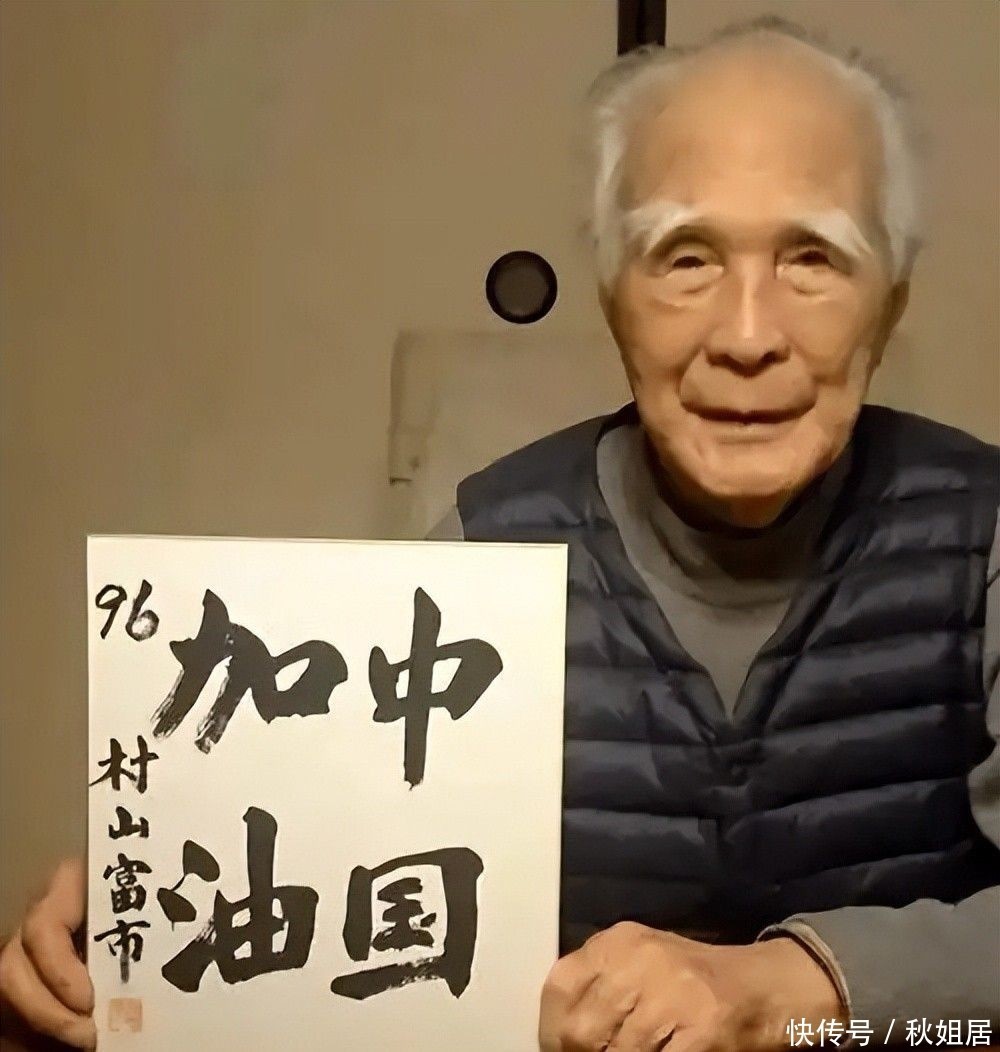 中国
加油
96
村山富市
快传号 / 秋姐居